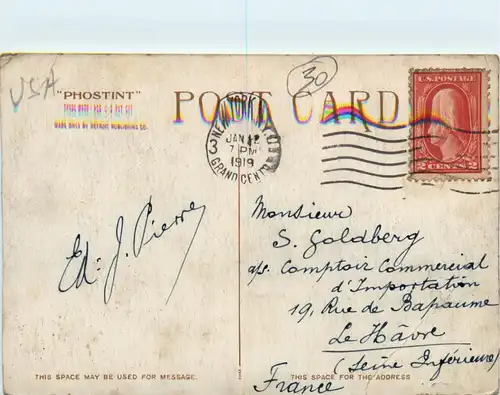 USA
30
"PHOSTINT"
MADE ONLY BY DETROIT PUBLISHING CO.
POST CARD
NEW YORK, N.Y.
3
JAN 12
7 PM
1919
GRAND CENT
U.S. POSTAGE
2 CENTS 2
Ed. J. Pierre
Monsieur
S. Goldberg
a/s. Comptoir Commercial
d'Importation
19, Rue de Bapaume
Le Hâvre
(Seine Inférieure)
France
THIS SPACE MAY BE USED FOR MESSAGE.
THIS SPACE FOR THE ADDRESS